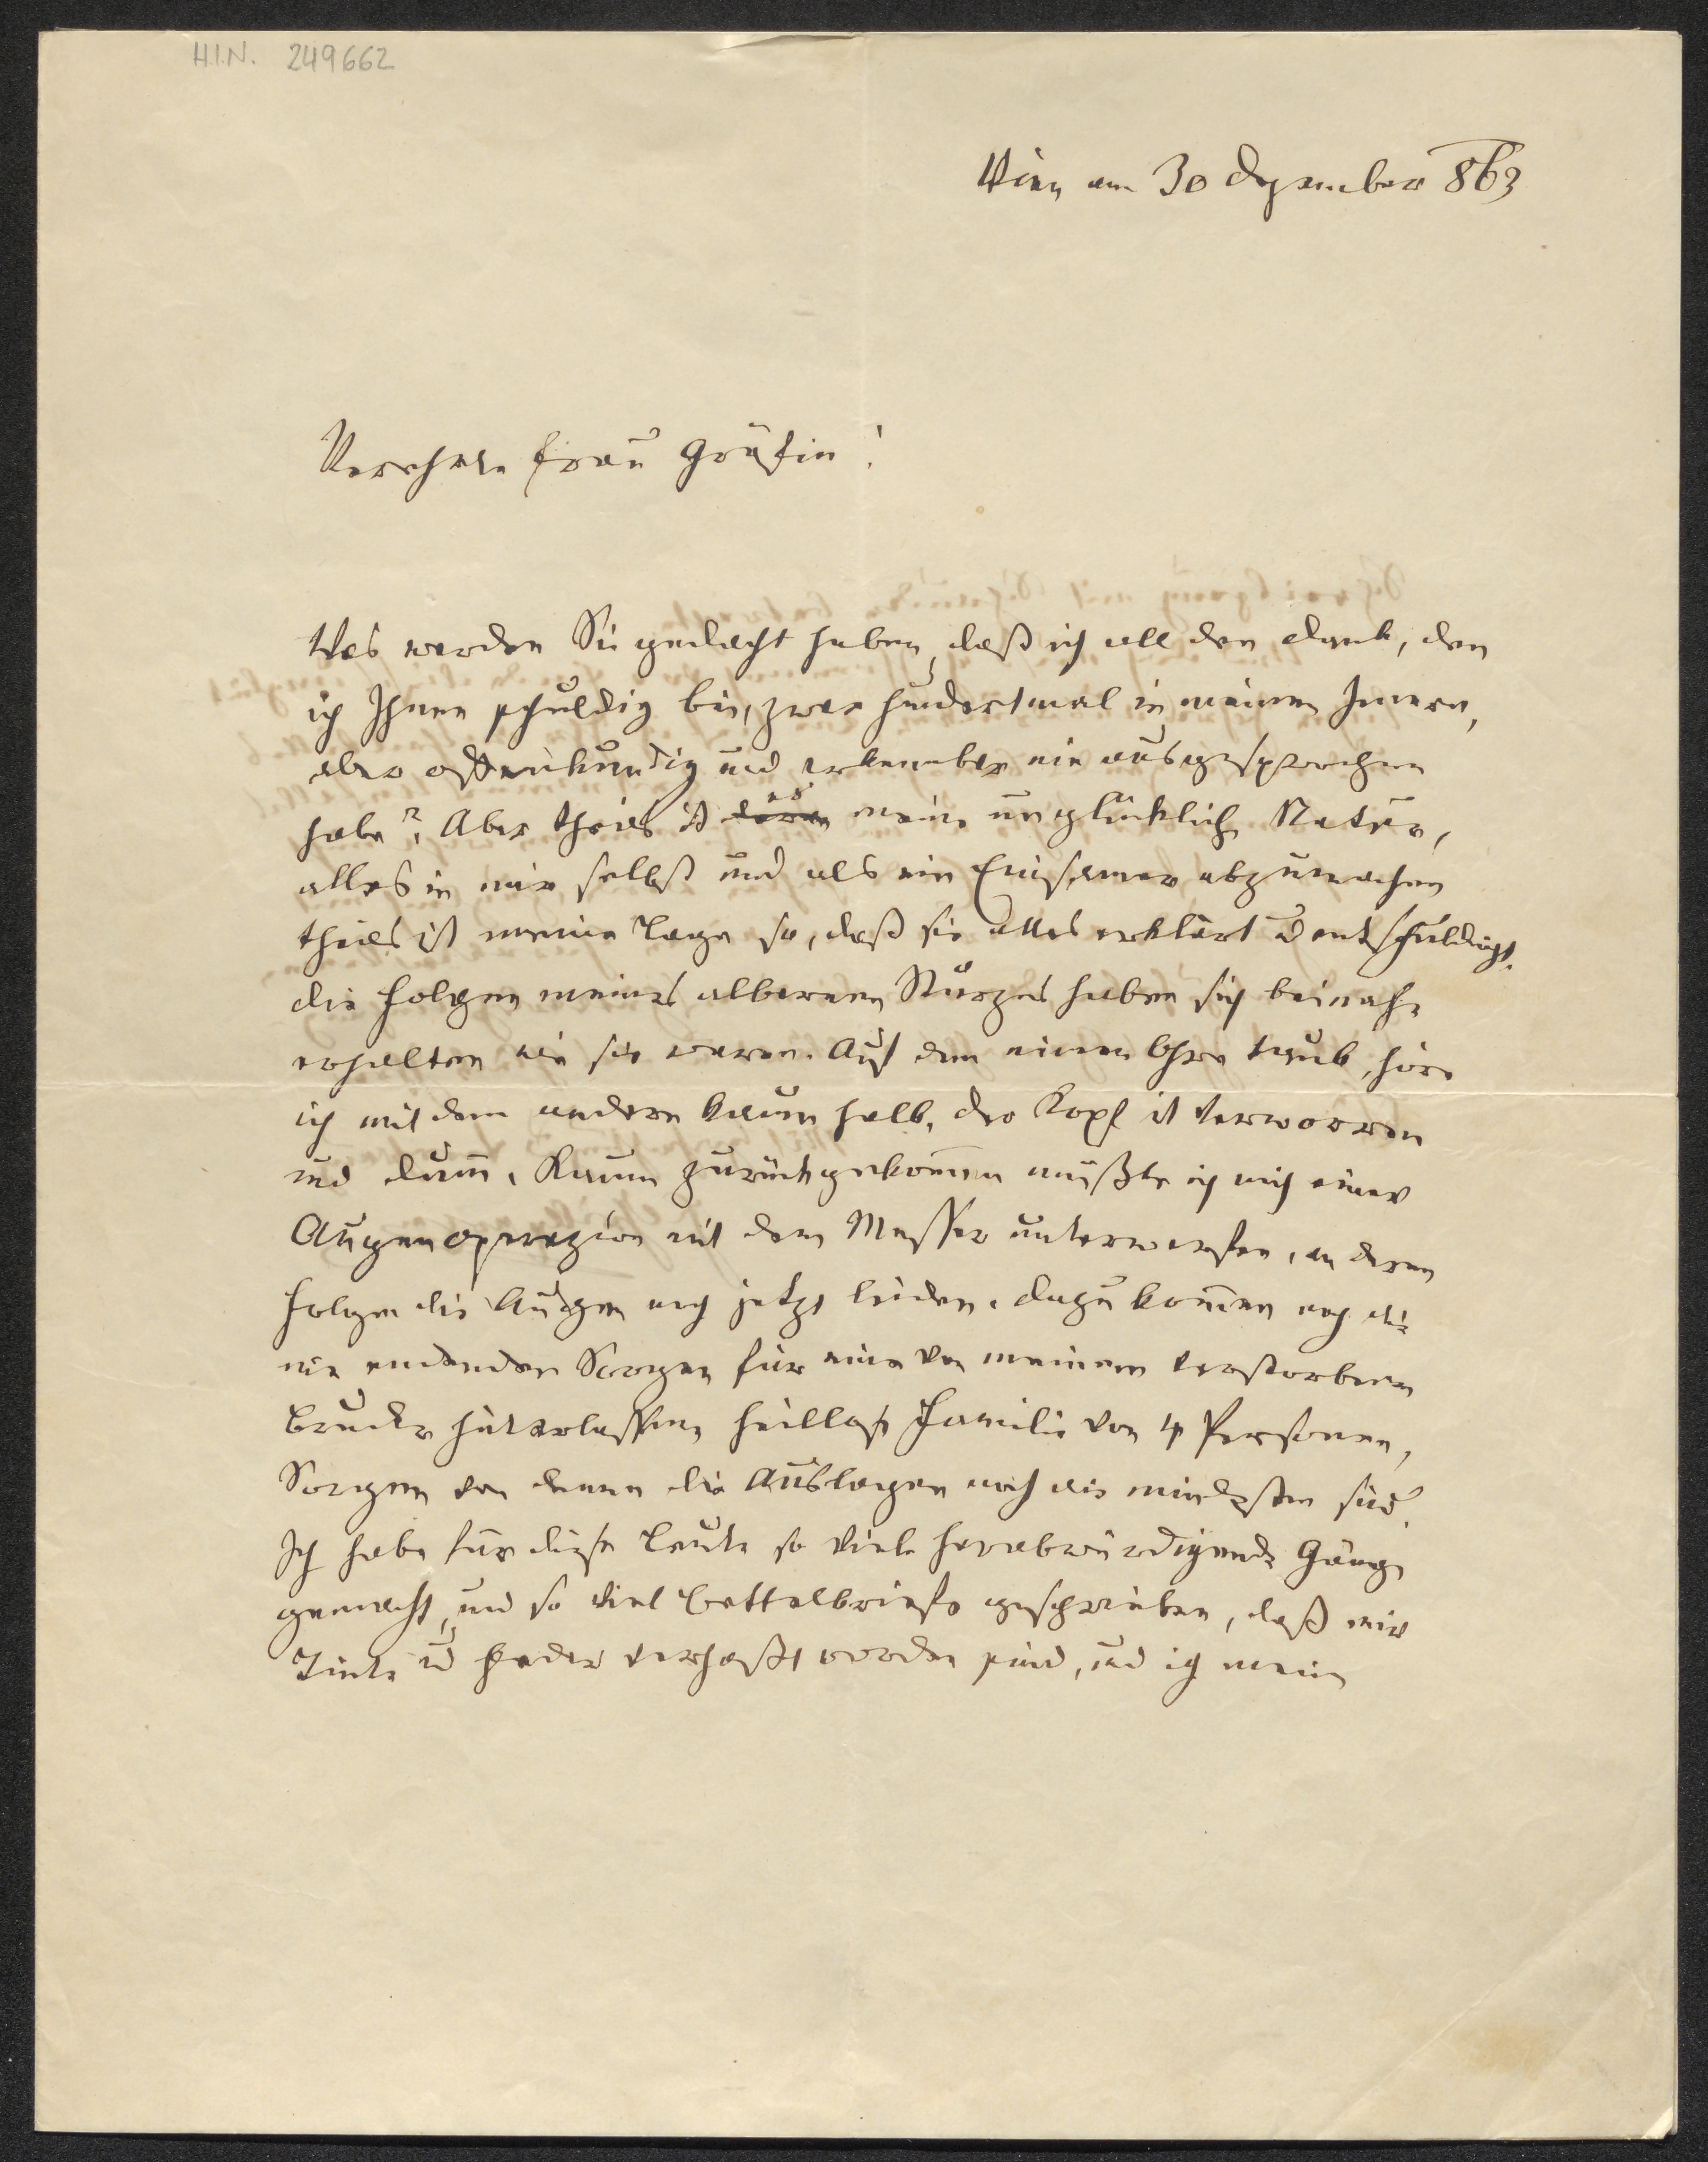 H.I.N. 249662
Wien am 30 Dezember 863
Verehrte Frau Gräfin!
Was werden Sie gedacht haben, daß ich all den Dank, den
ich Ihnen schuldig bin, zwar hundertmal in meinem Innern,
aber offenkundig und erkennbar nie ausgesprochen
habe? Aber theils ist es meine unglückliche Natur,
alles in mir selbst und als ein Einsamer abzumachen
theils ist meine Lage so, daß sie alles erklärt u entschuldigt.
Die Folgen meines albernen Sturzes haben sich beinahe
erhalten wie sie waren. Auf dem einen Ohre taub, höre
ich mit dem andern kaum halb, der Kopf ist verworren
und dum̄. Kaum zurückgekom̄en mußte ich mich einer
Augenoperazion mit dem Messer unterwerfen, an deren
Folgen die Augen noch jetzt leiden. Dazu kom̄en noch die
nie endenden Sorgen für eine von meinem verstorbenen
Bruder hinterlassene heillose Familie von 4 Personen,
Sorgen von denen die Auslagen noch die mindesten sind.
Ich habe für diese Leute so viele herabwürdigende Gänge
gemacht, und so viel Bettelbriefe geschrieben, daß mir
Tinte u Feder verhaßt worden sind, und ich meine